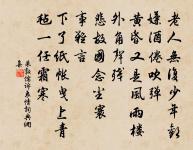 老人無復少年歡
嫌酒倦吹彈
黃昏又是風雨樓
外角聲殘
悲故國念塵寰
事難言
下了紙帳曳上青
氈一任霜寒
朱敦儒